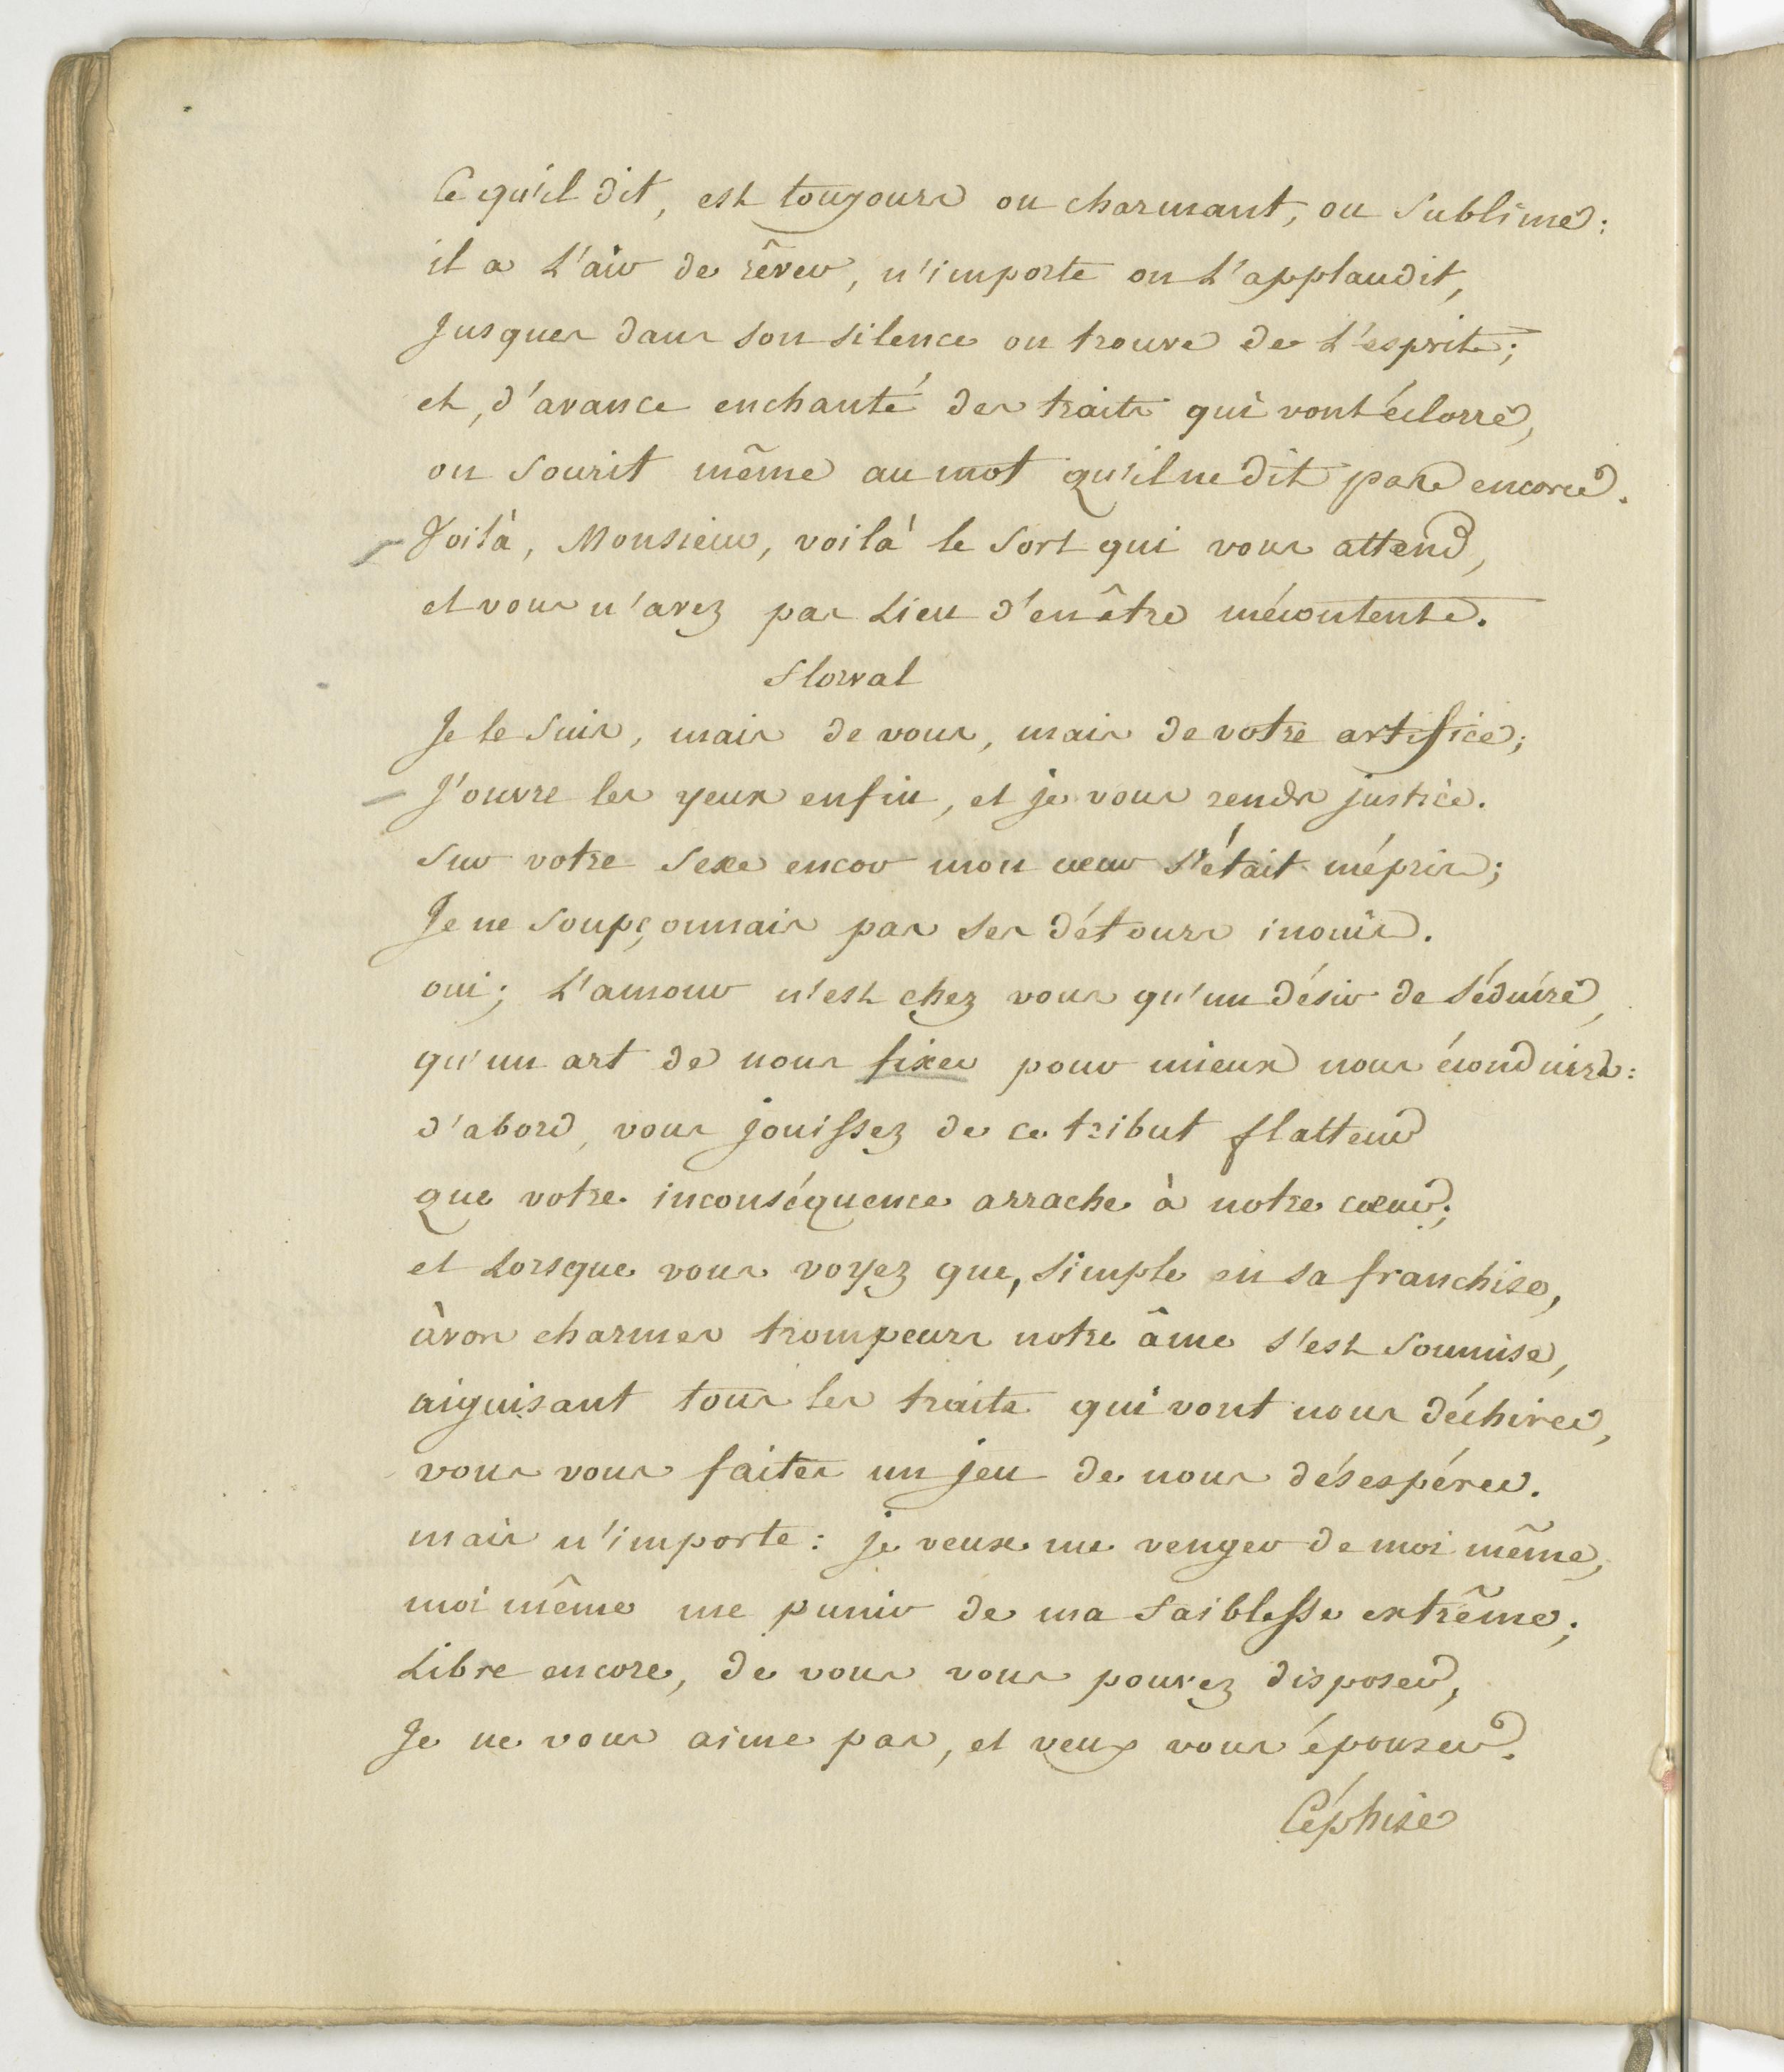 Ce qu'il dit, est toujours ou charmant, ou sublime:
il a l'air de rêver, n'importe on l'applaudit,
Jusques dans son silence on trouve de l'esprit;
et, d'avance enchanté des traits qui vont éclorre,
on sourit même au mot qu'il ne dit pas encore.
Voilà, Monsieur, voilà le sort qui vous attend,
et vous n'avez pas lieu d'en être mécontent.
Florval
Je le suis, mais de vous, mais de votre artifice;
J'ouvre les yeux enfin, et je vous rends justice.
Sur votre sexe encor mon cœur s'était mépris;
Je ne soupçonnais pas ses détours inouïs.
oui; l'amour n'est chez vous qu'un désir de séduire,
qu'un art de nous fixer pour mieux nous éconduire:
d'abord, vous jouissez de ce tribut flatteur
que votre inconséquence arrache à notre cœur;
et lorsque vous voyez que, simple en sa franchise,
à vos charmes trompeurs notre âme s'est soumise,
aiguisant tous les traits qui vont nous déchirer,
vous vous faites un jeu de nous désespérer.
mais n'importe: je veux me venger de moi même,
moi même me punir de ma faiblesse extrême;
Libre encore, de vous vous pouvez disposer,
Je ne vous aime pas, et veux vous épouser.
Céphise